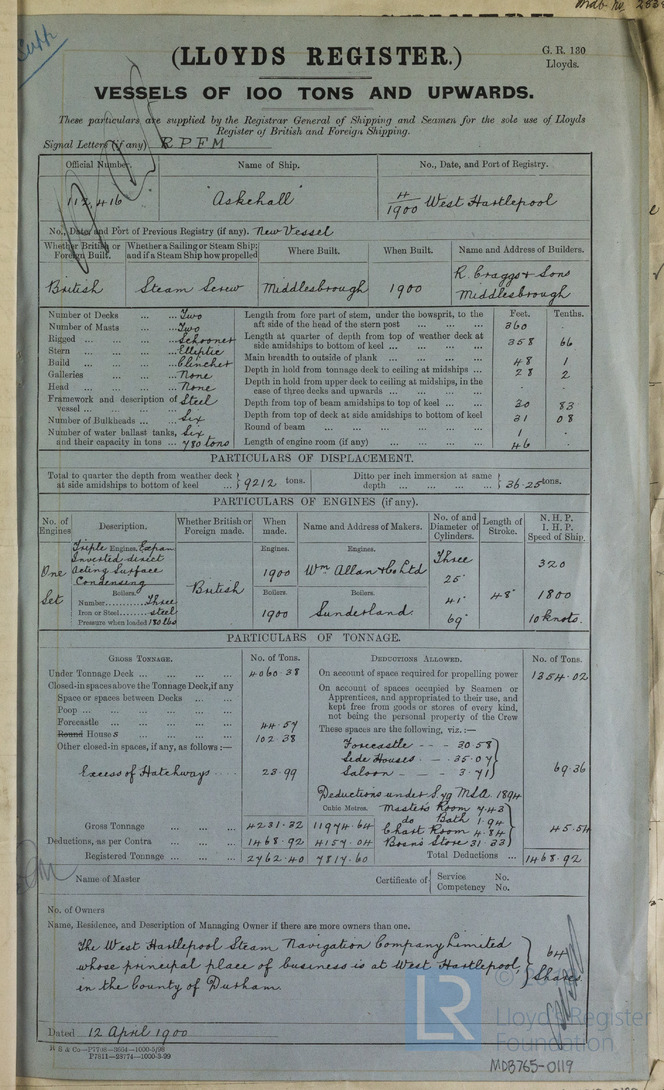 Mdb. no.
Supp
(LLOYDS REGISTER.)
G. R. 130
Lloyds.
VESSELS OF 100 TONS AND UPWARDS.
These particulars are supplied by the Registrar General of Shipping and Seamen for the sole use of Lloyds
Register of British and Foreign Shipping.
Signal Letters (if any) R P F M
Official Number. Name of Ship. No., Date, and Port of Registry.
112,416 "Askehall" 4/1900 West Hartlepool
No., Date and Port of Previous Registry (if any). New Vessel
Whether British or Foreign Built. Whether a Sailing or Steam Ship; and if a Steam Ship how propelled Where Built. When Built. Name and Address of Builders.
British Steam Screw Middlesbrough 1900 R. Craggs & Sons Middlesbrough
Number of Decks ... ... Two
Number of Masts ... ... Two
Rigged ... ... ... Schooner
Stern ... ... ... Elliptic
Build ... ... ... Clincher
Galleries ... ... ... None
Head ... ... ... None
Framework and description of vessel ... ... ... Steel
Number of Bulkheads ... Six
Number of water ballast tanks, and their capacity in tons ... Six 780 tons
Feet. Tenths.
Length from fore part of stem, under the bowsprit, to the aft side of the head of the stern post ... ... ... 360 .
Length at quarter of depth from top of weather deck at side amidships to bottom of keel ... ... ... ... 358 66
Main breadth to outside of plank ... ... ... ... 48 1
Depth in hold from tonnage deck to ceiling at midships ... 28 2
Depth in hold from upper deck to ceiling at midships, in the case of three decks and upwards ... ... ... . .
Depth from top of beam amidships to top of keel ... ... 30 83
Depth from top of deck at side amidships to bottom of keel 31 08
Round of beam ... ... ... ... ... 1 .
Length of engine room (if any) ... ... ... ... 46 .
PARTICULARS OF DISPLACEMENT.
Total to quarter the depth from weather deck at side amidships to bottom of keel ... } 9212 tons. Ditto per inch immersion at same depth ... ... ... ... } 36.25 tons.
PARTICULARS OF ENGINES (if any).
No. of Engines Description. Whether British or Foreign made. When made. Name and Address of Makers. No. of and Diameter of Cylinders. Length of Stroke. N. H. P. I. H. P. Speed of Ship.
One Set
Triple Engines. Expan
Inverted direct
acting Surface
Condensing
Boilers.
Number.......... Three
Iron or Steel...... steel
Pressure when loaded 180 lbs
British
Engines. 1900
Boilers. 1900
Engines. Wm. Allan & Co Ltd
Boilers. Sunderland.
Three
25"
41"
69"
48"
320
1800
10 knots.
PARTICULARS OF TONNAGE.
GROSS TONNAGE. No. of Tons. DEDUCTIONS ALLOWED. No. of Tons.
Under Tonnage Deck ... ... ... ... 4060.38
Closed-in spaces above the Tonnage Deck, if any
Space or spaces between Decks ... ...
Poop ... ... ... ... ...
Forecastle ... ... ... ... 44.57
Round Houses ... ... ... ... 102.38
Other closed-in spaces, if any, as follows :—
Excess of Hatchways 23.99
Gross Tonnage ... ... ... 4231.32
Deductions, as per Contra ... ... ... 1468.92
Registered Tonnage ... ... ... 2762.40
Cubic Metres.
11974.64
4157.04
7817.60
On account of space required for propelling power 1354.02
On account of spaces occupied by Seamen or
Apprentices, and appropriated to their use, and
kept free from goods or stores of every kind,
not being the personal property of the Crew
These spaces are the following, viz. :—
Forecastle - - - 30.58
Side Houses - - 35.07
Saloon - - - 3.71
69.36
Deductions under S.79 MSA. 1894
Masters Room 7.43
do Bath 1.94
Chart Room 4.84
Bosns Store 31.33
45.54
Total Deductions ... 1468.92
Name of Master Certificate of { Service No.
Competency No.
No. of Owners
Name, Residence, and Description of Managing Owner if there are more owners than one.
The West Hartlepool Steam Navigation Company Limited
whose principal place of business is at West Hartlepool,
in the County of Durham.
64
Shares
Dated 12 April 1900
LR
Lloyd's Register
Foundation
MDB765-0119